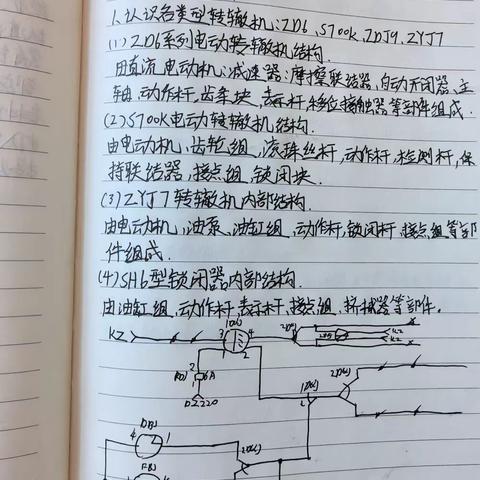 1.认识各类型转辙机:ZD6、S700K、ZDJ9、ZYJ7
(1)ZD6系列电动转辙机结构.
用直流电动机;减速器;摩擦联结器,自动开闭器,主
轴,动作杆,齿条块,表示杆,移位接触器等部件组成.
(2)S700K电动转辙机结构.
由电动机,齿轮组,滚珠丝杆,动作杆,检测杆,保
持联结器,接点组,锁闭块.
(3)ZYJ7转辙机内部结构.
由电动机,油泵,油缸组,动作杆,锁闭杆,接点组等部
件组成.
(4)SH6型锁闭器内部结构.
由油缸组,动作杆,表示杆,接点组,挤脱器等部件.
KZ 3 4
2
KZ
KZ
2
1
DZ220
DBJ
4 1
FBJ